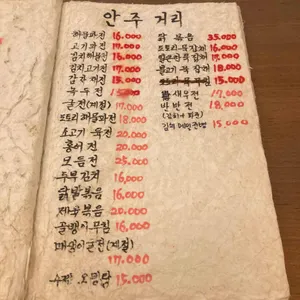 안주 거리
해물파전 16.000
고기파전 17.000
김치해물전 16.000
김치고기전 17.000
감자전 15.000
녹두전
굴전(계절) 17.000
도토리해물파전 18.000
소고기육전 20.000
홍어전 20.000
모듬전 25.000
두부김치 16.000
닭발볶음 16,000
제육볶음 20.000
골뱅이무침 16.000
매생이굴전(계절)
17.000
수제 오뎅탕 15.000
닭볶음 35.000
도토리묵잡채 16.000
묵잡채 17.000
불고기묵잡채 18.000
15.000
새우전 17.000
반반전 18,000
(김치+파전)
15,000